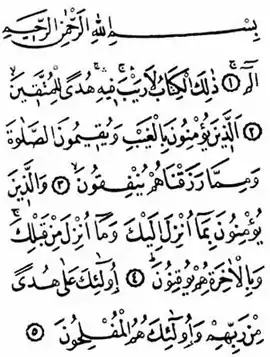 بِسْمِ اللّٰهِ الرَّحْمٰنِ الرَّحِيمِ
الٓمٓ ۚ ﴿١﴾ ذٰلِكَ الْكِتَابُ لَا رَيْبَ ۛ فِيهِ ۛ هُدًى لِلْمُتَّقِينَ ۙ
﴿٢﴾ اَلَّذِينَ يُؤْمِنُونَ بِالْغَيْبِ وَيُقِيمُونَ الصَّلٰوةَ
وَمِمَّا رَزَقْنَاهُمْ يُنْفِقُونَ ۙ ﴿٣﴾ وَالَّذِينَ
يُؤْمِنُونَ بِمَٓا اُنْزِلَ اِلَيْكَ وَمَٓا اُنْزِلَ مِنْ قَبْلِكَ ۚ
وَبِالْاٰخِرَةِ هُمْ يُوقِنُونَ ۜ ﴿٤﴾ اُو۬لٰٓئِكَ عَلٰى هُدًى
مِنْ رَبِّهِمْ وَاُو۬لٰٓئِكَ هُمُ الْمُفْلِحُونَ ﴿٥﴾